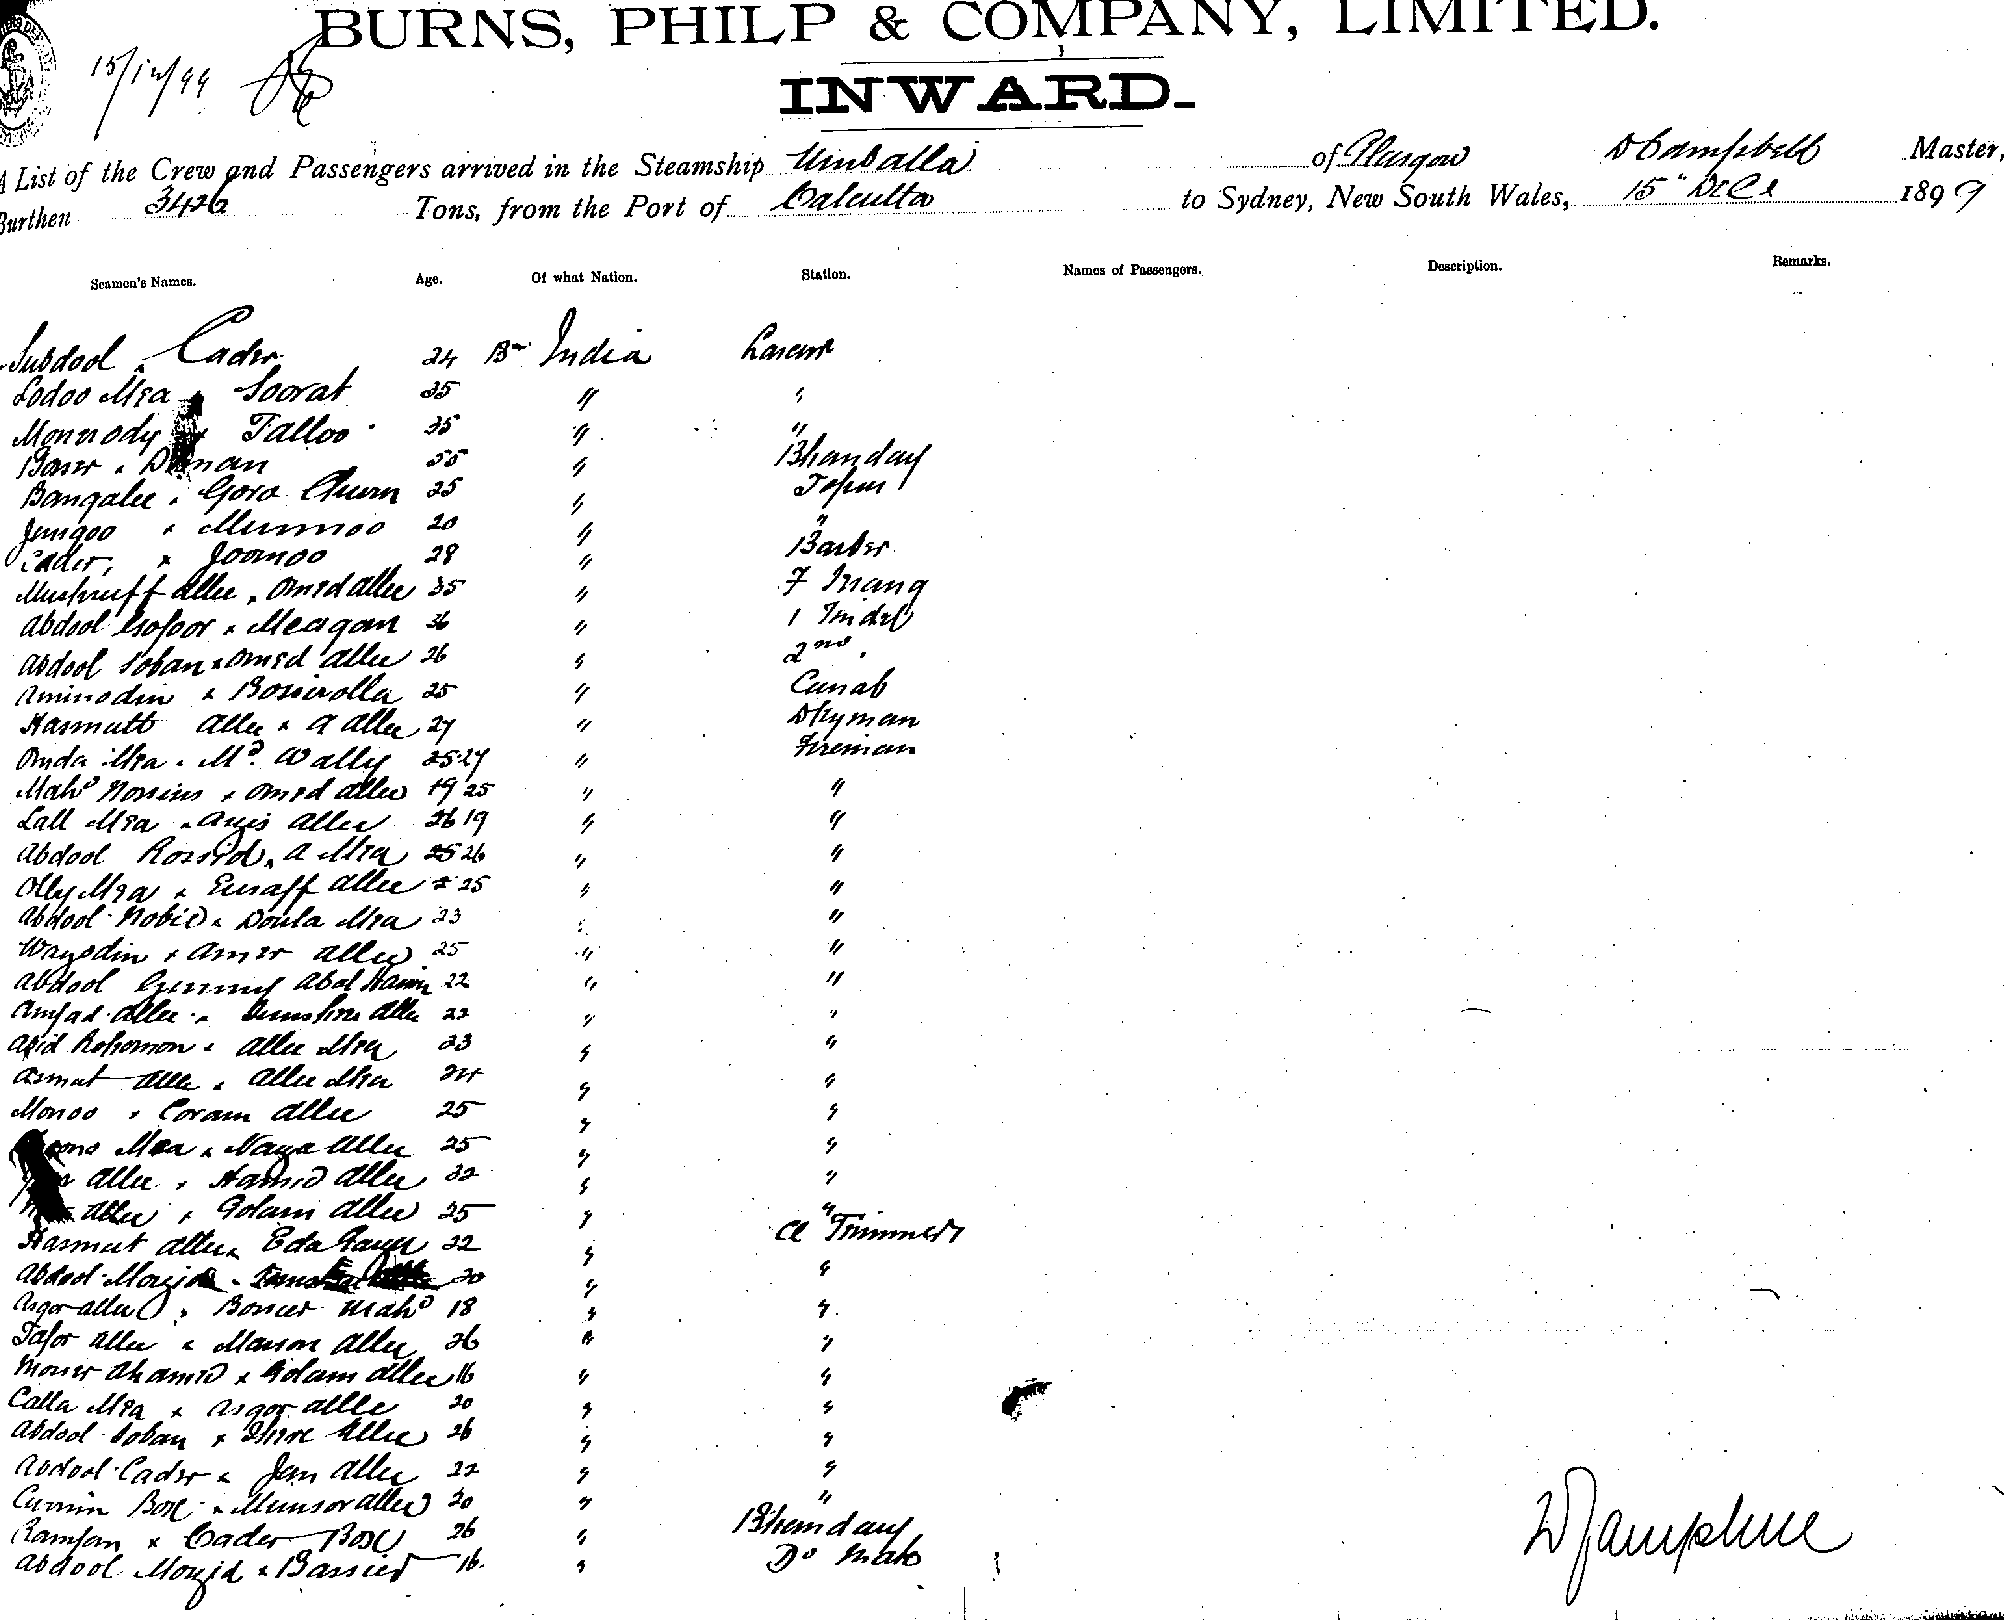 BURNS, PHILP & COMPANY, LIMITED.
15/12/99
INWARD.
A List of the Crew and Passengers arrived in the Steamship Umballa of Glasgow D Campbell Master,
Burthen 3426 Tons, from the Port of Calcutta to Sydney, New South Wales, 15" Decr 1899
Seamen's Names. Age. Of what Nation. Station. Names of Passengers. Description. Remarks.
Subdool Cader 24 Br India Lascar
Sodoo Mea x Soorat 35 " "
Monrody x Talloo 35 " "
Baser x 55 " Bhanday
Bangalee x Gora Churn 25 " Topas
Jungoo x Munnoo 20 " "
Cader, x Joomoo 28 " Barber
Mushruff Allee x Omed Allee 35 " F
Abdool Gofoor x Meagan 36 " 1 Tindel
Abdool Soban x Omed Allee 26 " 2nd
Aminodin x Bosirolla 25 "
Hasmutt Allee x A Allee 27 " Dkyman
Onda Mea x Md Wally 25 27 " Fireman
Mahd Nossius x Omed Allee 19 25 " "
Lall Mea x Allee 26 19 " "
Abdool Rossid x A Mea 25 26 " "
Olly Mea x Eusaff Allee 25 " "
Abdool Nobie x Doula Mea 23 " "
Waysdin x Amer Allee 25 " "
Abdool Gunny Abdl 22 " "
Amjad Allee x Allee 22 " "
Asid Rohomon x Allee Mea 23 " "
Asmut Allee x Allee Mea 24 " "
Monoo x Coram Allee 25 " "
Mea x Naya Allee 25 " "
Allee x Hamid Allee 22 " "
Allee x Golam Allee 25 " "
Hasmut Allee x Eda 22 " C Trimmer
Abdool Mozid x 20 " "
Asgor Allee x Boncer Mahd 18 " "
Tafor Allee x Manson Allee 26 " "
Moner Ahamed x Golam Allee 16 " "
Calla Mea x Asgor Allee 20 " "
Abdool Soban x Allee 26 " "
Abdool Cader x Jan Allee 22 " "
Cumin Box x Munsor Allee 20 " "
Ramjan x Cader Box 26 " Bhanday
Abdool Mozid x Bassier 16 " Do Mate